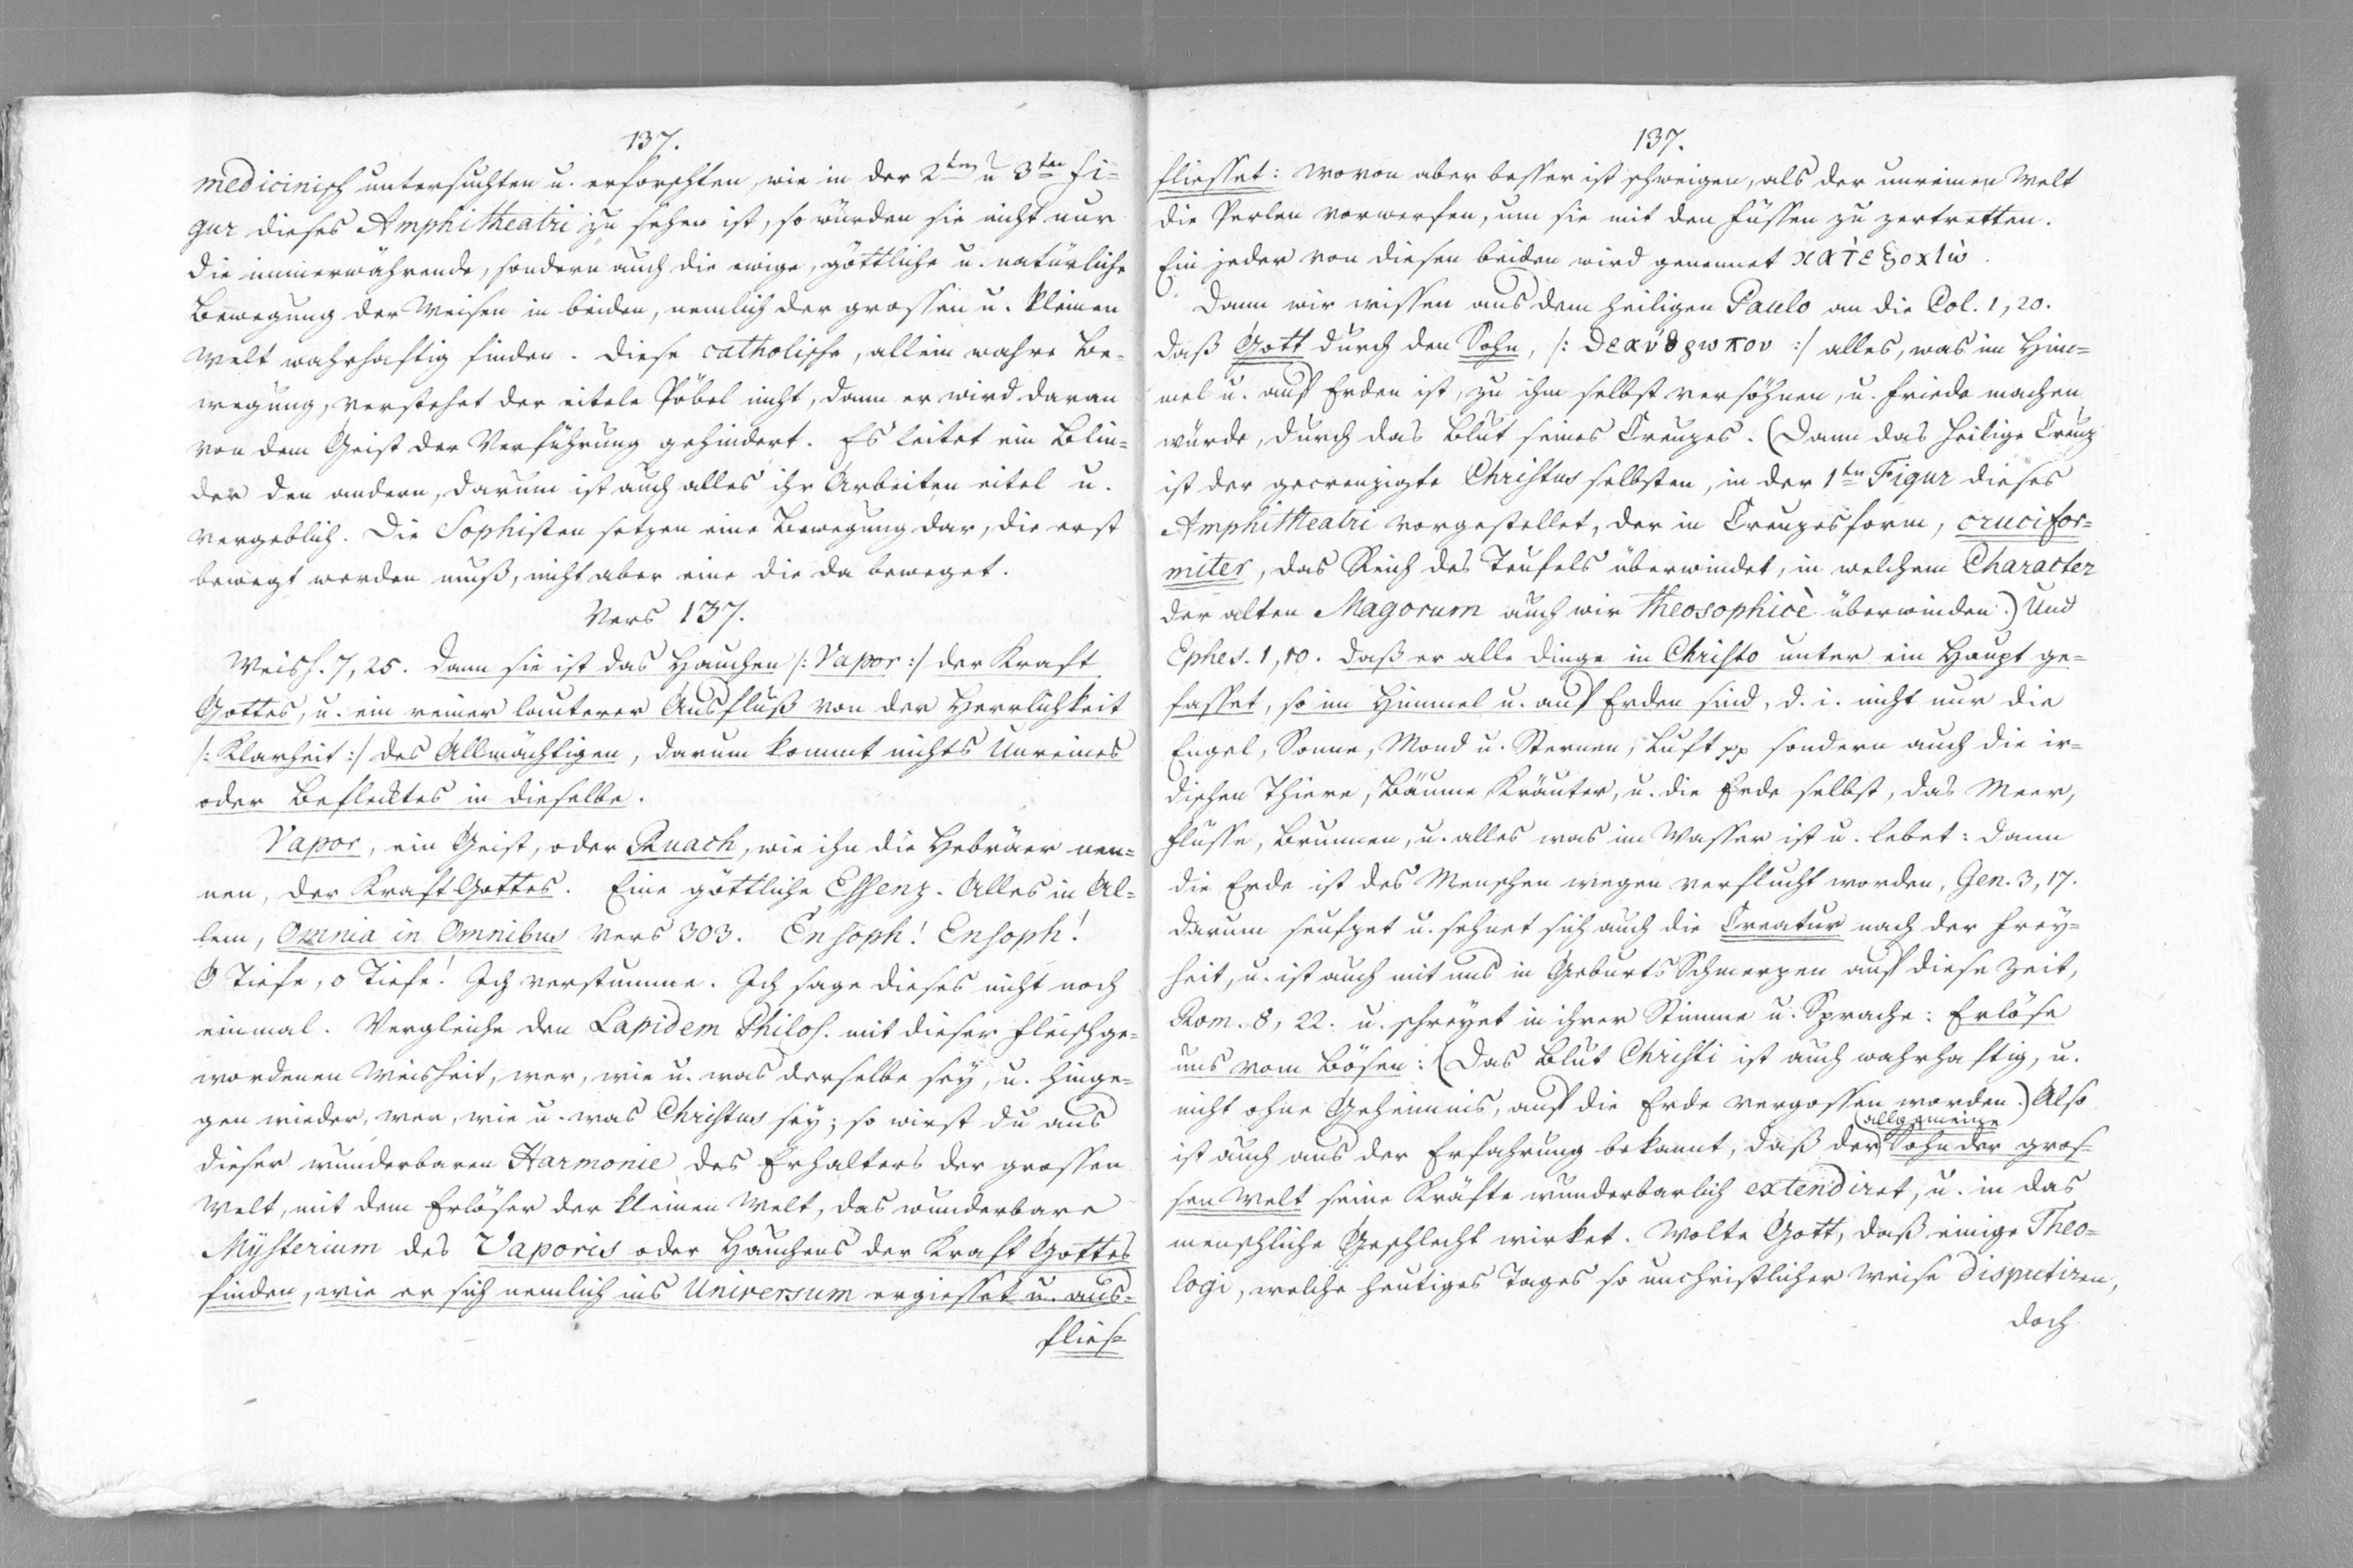 137.
medicinisch untersuchten u. erforschten, wie in der 2ten u 3ten Fi-
gur dieses Amphitheatri zu sehen ist, so würden sie nicht nur
die immerwährende, sondern auch die ewige, göttliche u. natürliche
Bewegung der Weisen in beiden, nemlich der grossen u. kleinen
Welt wahrhaftig finden. Diese catholische, allein wahre Be-
wegung, verstehet der eitele Pöbel nicht, dann er wird daran
von dem Geist der Verführung gehindert. Es leitet ein Blin-
der den andern, darum ist auch alles ihr Arbeiten eitel u.
vergeblich. Die Sophisten setzen eine Bewegung dar, die erst
bewegt werden muß, nicht aber eine die da beweget.
Vers 137.
Weish. 7, 25. Dann sie ist das Hauchen /: Vapor :/ der Kraft
Gottes, u. ein reiner lauterer Ausfluß von der Herrlichkeit
/: Klarheit :/ des Allmächtigen, darum kommt nichts Unreines
oder Beflecktes in dieselbe.
Vapor, ein Geist, oder Ruach, wie ihn die Hebräer nen-
nen, der Kraft Gottes. Eine göttliche Essenz. Alles in Al-
lem, Omnia in Omnibus Vers 303. Ensoph! Ensoph!
O Tiefe, o Tiefe! Ich verstumme. Ich sage dieses nicht noch
einmal. Vergleiche den Lapidem Philos. mit dieser fleischge-
wordenen Weisheit, wer, wie u. was derselbe sey, u. hinge-
gen wieder, wer, wie u. was Christus sey; so wirst du aus
dieser wunderbaren Harmonie des Erhalters der grossen
Welt, mit dem Erlöser der kleinen Welt, das wunderbare
Mysterium des Vaporis oder Hauchens der Kraft Gottes
finden, wie er sich nemlich ins Universum ergiesset u. aus-
flies-
137.
fliesset: wovon aber besser ist schweigen, als der unreinen Welt
die Perlen vorwerfen, um sie mit den Füssen zu zertretten.
Ein jeder von diesen beiden wird genennet
Dann wir wissen aus dem heiligen Paulo an die Col. 1, 20.
daß Gott durch den Sohn, /: :/ alles, was im Him-
mel u. auf Erden ist, zu ihm selbst versöhnen, u. Friede machen
würde, durch das Blut seines Creuzes. (Dann das heilige Creuz
ist der gecreuzigte Christus selbsten, in der 1ten Figur dieses
Amphitheatri vorgestellet, der in Creuzesform, crucifor-
miter, das Reich des Teufels überwindet, in welchem Character
der alten Magorum auch wir theosophicè überwinden.) Und
Ephes. 1, 10. daß er alle Dinge in Christo unter ein Haupt ge-
fasset, so im Himmel u. auf Erden sind, d. i. nicht nur die
Engel, Sonne, Mond u. Sternen, Luft pp sondern auch die ir-
dischen Thiere, Bäume, Kräuter, u. die Erde selbst, das Meer,
Flüsse, Brunnen, u. alles was im Wasser ist u. lebet: dann
die Erde ist des Menschen wegen verflucht worden, Gen. 3, 17.
darum seufzet u. sehnet sich auch die Creatur nach der Frey-
heit, u. ist auch mit uns in Geburts Schmerzen auf diese Zeit,
Rom. 8, 22. u. schreyet in ihrer Stimme u. Sprache: Erlöse
uns vom Bösen: (Das Blut Christi ist auch wahrhaftig, u.
nicht ohne Geheimnis, auf die Erde vergossen worden.) Also
ist auch aus der Erfahrung bekannt, daß der allgemeine Sohn der gros-
sen Welt seine Kräfte wunderbarlich extendiret, u. in das
menschliche Geschlecht wirket. Wolte Gott, daß einige Theo-
logi, welche heutiges Tages so unchristlicher Weise disputiren,
doch